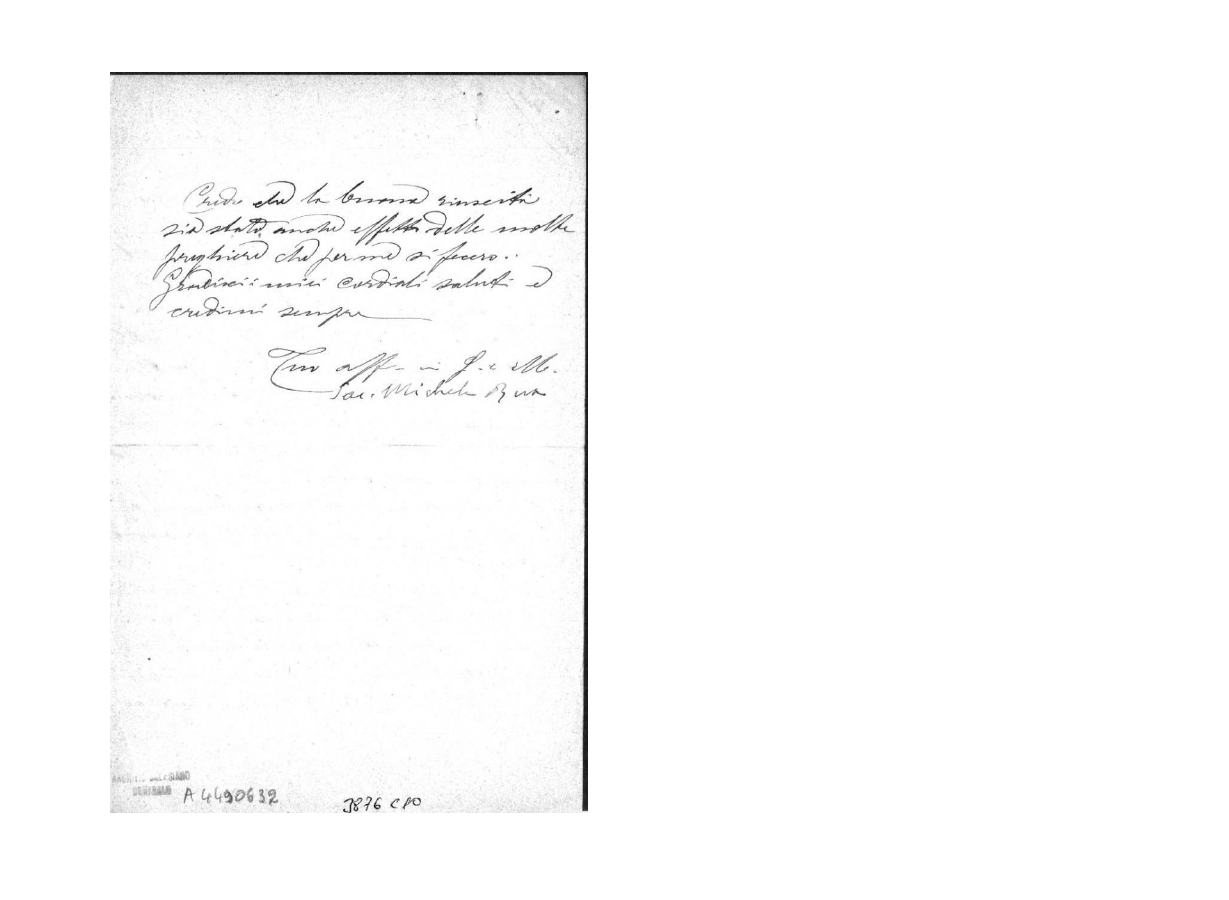 Credo che la buona riuscita
sia stata anche effetto delle molte
preghiere che per me si fecero.
Gradisci i miei cordiali saluti e
credimi sempre
Tuo aff. in G. e M.
Sac. Michele Rua
SALESIANO
A4490632
3876 C10